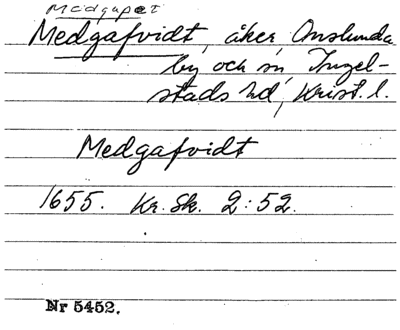 Medgapet
Medgafvidt, åker Onslunda
by och sn, Ingel-
stads hd, Krist. l.
Medgafvidt
1655. Kr. Sk. 2:52.
Nr 5452.